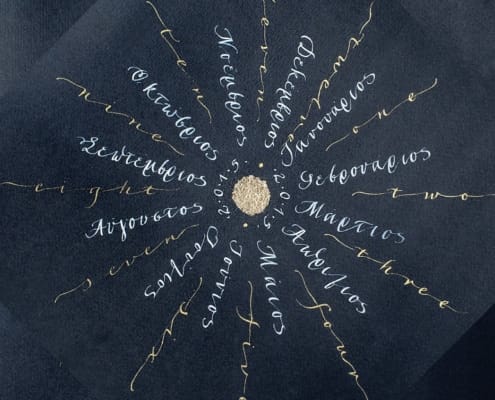 Ιανουάριος
one
Φεβρουάριος
two
Μάρτιος
three
Απρίλιος
four
Μάιος
five
Ιούνιος
six
Ιούλιος
seven
Αύγουστος
eight
Σεπτέμβριος
nine
Οκτώβριος
ten
Νοέμβριος
eleven
Δεκέμβριος
twelve
2015